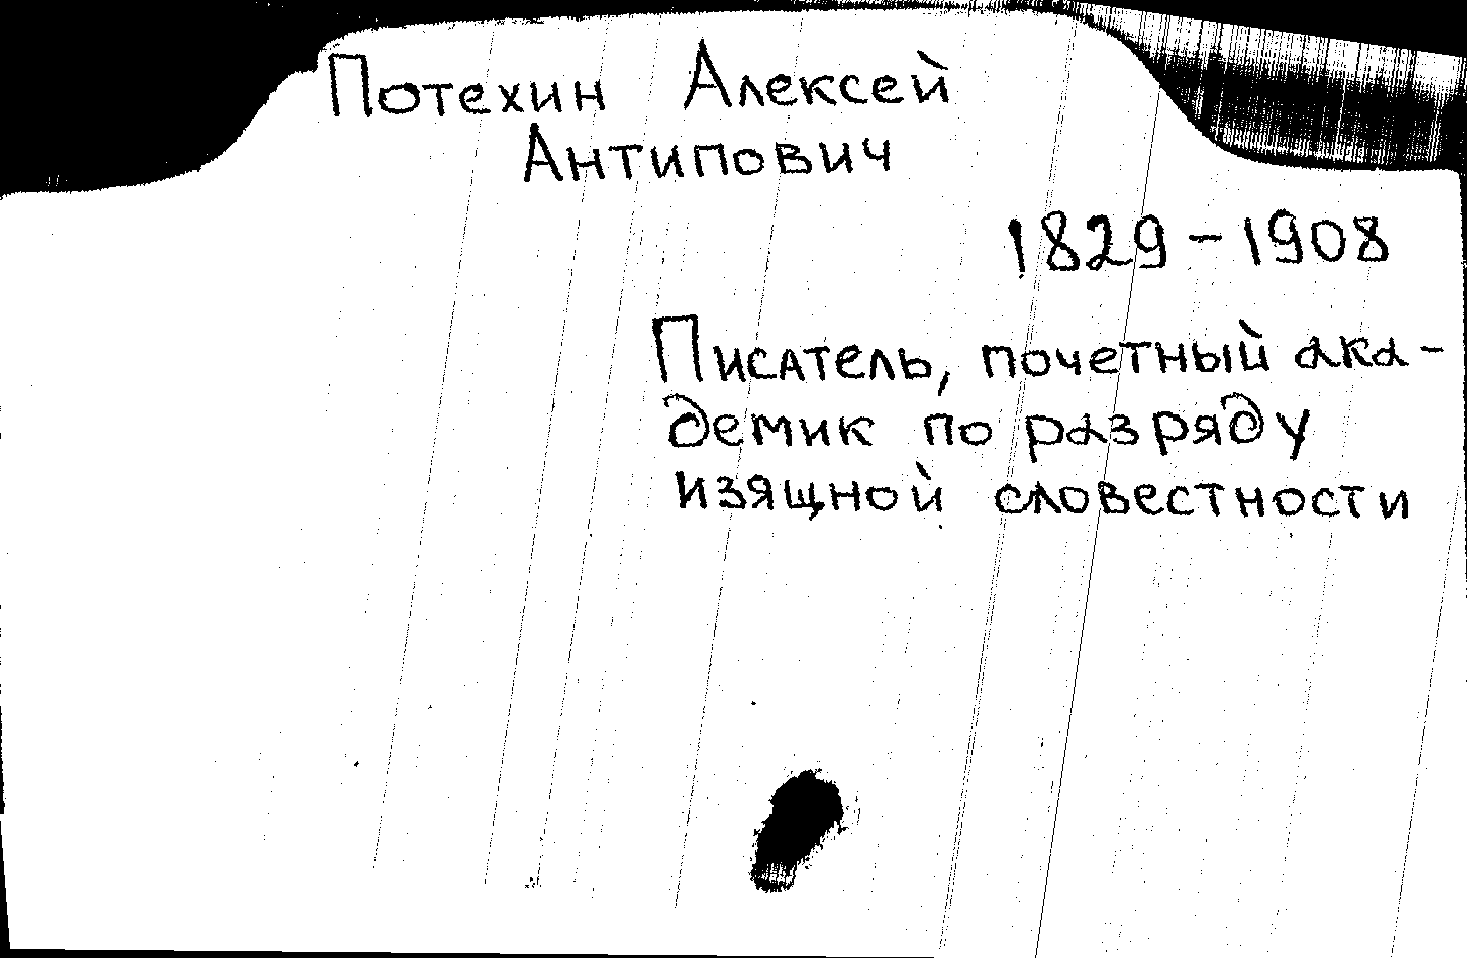 Потехин Алексей
Антипович
1829-1908
Писатель, почетный ака-
демик по разряду
изящной словестности